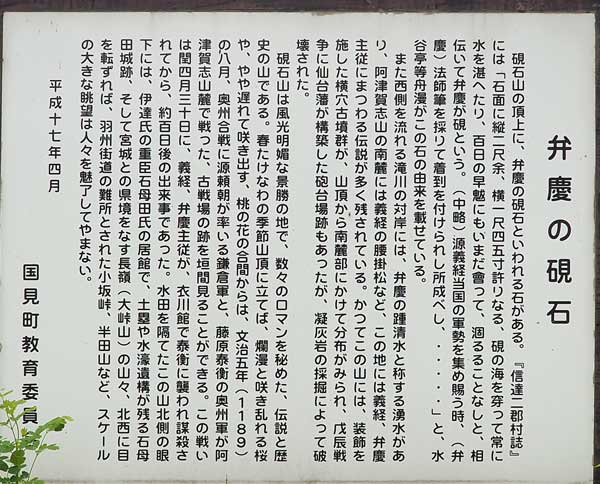 弁慶の硯石
硯石山の頂上に、弁慶の硯石といわれる石がある。『信達二郡村誌』
には「石面に縦二尺余、横一尺四五寸許りなる、硯の海を穿って常に
水を湛へたり、百日の早魃にもいまだ會って、涸るることなしと、相
伝いて弁慶が硯という。（中略）源義経当国の軍勢を集め賜う時、（弁
慶）法師筆を採りて着到を付けられし所成べし、・・・・・」と、水
谷亭等舟漫がこの石の由来を載せている。
また西側を流れる滝川の対岸には、弁慶の踵清水と称する湧水があ
り、阿津賀志山の南麓には義経の腰掛松など、この地には義経、弁慶
主従にまつわる伝説が多く残されている。かつてこの山には、装飾を
施した横穴古墳群が、山頂から南麓部にかけて分布がみられ、戊辰戦
争に仙台藩が構築した砲台場跡もあったが、凝灰岩の採掘によって破
壊された。
硯石山は風光明媚な景勝の地で、数々のロマンを秘めた、伝説と歴
史の山である。春たけなわの季節山頂に立てば、爛漫と咲き乱れる桜
や、やや遅れて咲き出す、桃の花の合間からは、文治五年（1189）
の八月、奥州合戦に源頼朝が率いる鎌倉軍と、藤原泰衡の奥州軍が阿
津賀志山麓で戦った、古戦場の跡を垣間見ることができる。この戦い
は閏四月三十日に、義経、弁慶主従が、衣川館で泰衡に襲われ謀殺さ
れてから、約百日後の出来事であった。水田を隔てたこの山北側の眼
下には、伊達氏の重臣石母田氏の居館で、土塁や水濠遺構が残る石母
田城跡、そして宮城との県境をなす長嶺（大峠山）の山々、北西に目
を転ずれば、羽州街道の難所とされた小坂峠、半田山など、スケール
の大きな眺望は人々を魅了してやまない。
平成十七年四月
国見町教育委員